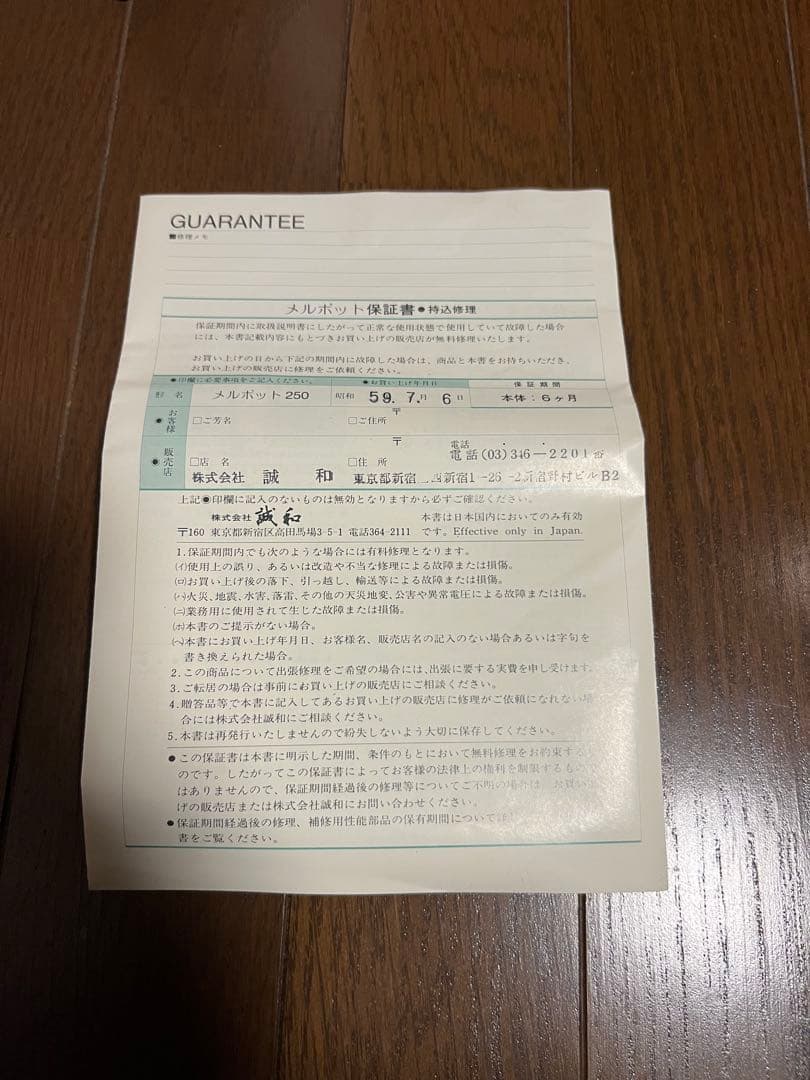 GUARANTEE
■修理メモ
メルポット保証書●持込修理
保証期間内に取扱説明書にしたがって正常な使用状態で使用していて故障した場合
には、本書記載内容にもとづきお買い上げの販売店が無料修理いたします。
お買い上げの日から下記の期間内に故障した場合は、商品と本書をお持ちいただき、
お買い上げの販売店に修理をご依頼ください。
●印欄に必要事項をご記入ください。 ●お買い上げ年月日 保証期間
形名 メルポット250 昭和 59.7.月 6日 本体:6ヶ月
●お客様 □ご芳名 □ご住所 〒
●販売店 □店名 □住所 〒 電話
電話(03)346—2201番
株式会社 誠和 東京都新宿 西新宿1-26-2新宿野村ビルB2
上記●印欄に記入のないものは無効となりますから必ずご確認ください。
株式会社 誠和 本書は日本国内においてのみ有効
〒160 東京都新宿区高田馬場3-5-1 電話364-2111 です。Effective only in Japan.
1.保証期間内でも次のような場合には有料修理となります。
(イ)使用上の誤り、あるいは改造や不当な修理による故障または損傷。
(ロ)お買い上げ後の落下、引っ越し、輸送等による故障または損傷。
(ハ)火災、地震、水害、落雷、その他の天災地変、公害や異常電圧による故障または損傷。
(ニ)業務用に使用されて生じた故障または損傷。
(ホ)本書のご提示がない場合。
(ヘ)本書にお買い上げ年月日、お客様名、販売店名の記入のない場合あるいは字句を
書き換えられた場合。
2.この商品について出張修理をご希望の場合には、出張に要する実費を申し受けます。
3.ご転居の場合は事前にお買い上げの販売店にご相談ください。
4.贈答品等で本書に記入してあるお買い上げの販売店に修理がご依頼になれない場
合には株式会社誠和にご相談ください。
5.本書は再発行いたしませんので紛失しないよう大切に保存してください。
●この保証書は本書に明示した期間、条件のもとにおいて無料修理をお約束するも
のです。したがってこの保証書によってお客様の法律上の権利を制限するもので
はありませんので、保証期間経過後の修理等についてご不明の場合は、お買い上
げの販売店または株式会社誠和にお問い合わせください。
●保証期間経過後の修理、補修用性能部品の保有期間については
書をご覧ください。